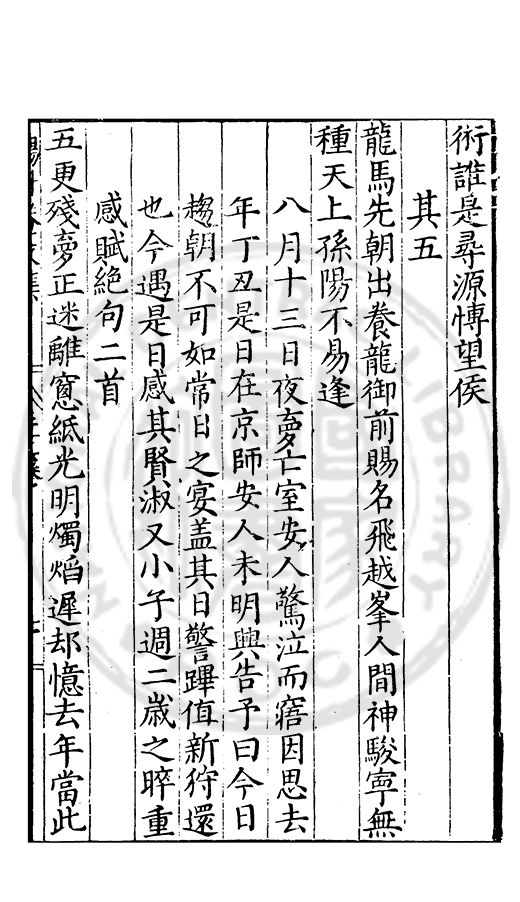 術誰是尋源博望侯
其五
龍馬先朝出養龍御前賜名飛越峯人間神駿寧無
種天上孫陽不易逢
八月十三日夜夢亡室安人驚泣而寤因思去
年丁丑是日在京師安人未明興告予曰今日
趨朝不可如常日之宴盖其日警蹕值新狩還
也今遇是日感其賢淑又小子週二歲之晬重
感賦絕句二首
五更殘夢正迷離窻紙光明燭熖遲却憶去年當此